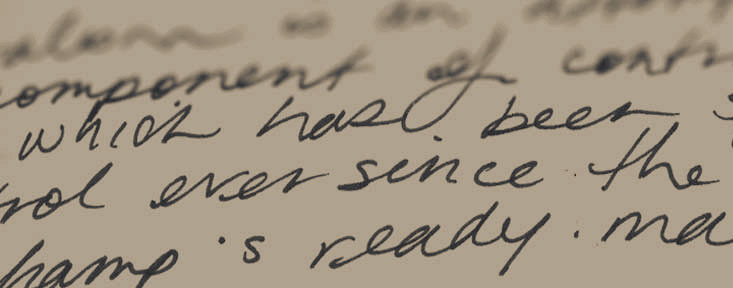 component of contr
which has been s
rol ever since the
hamp 's ready. ma